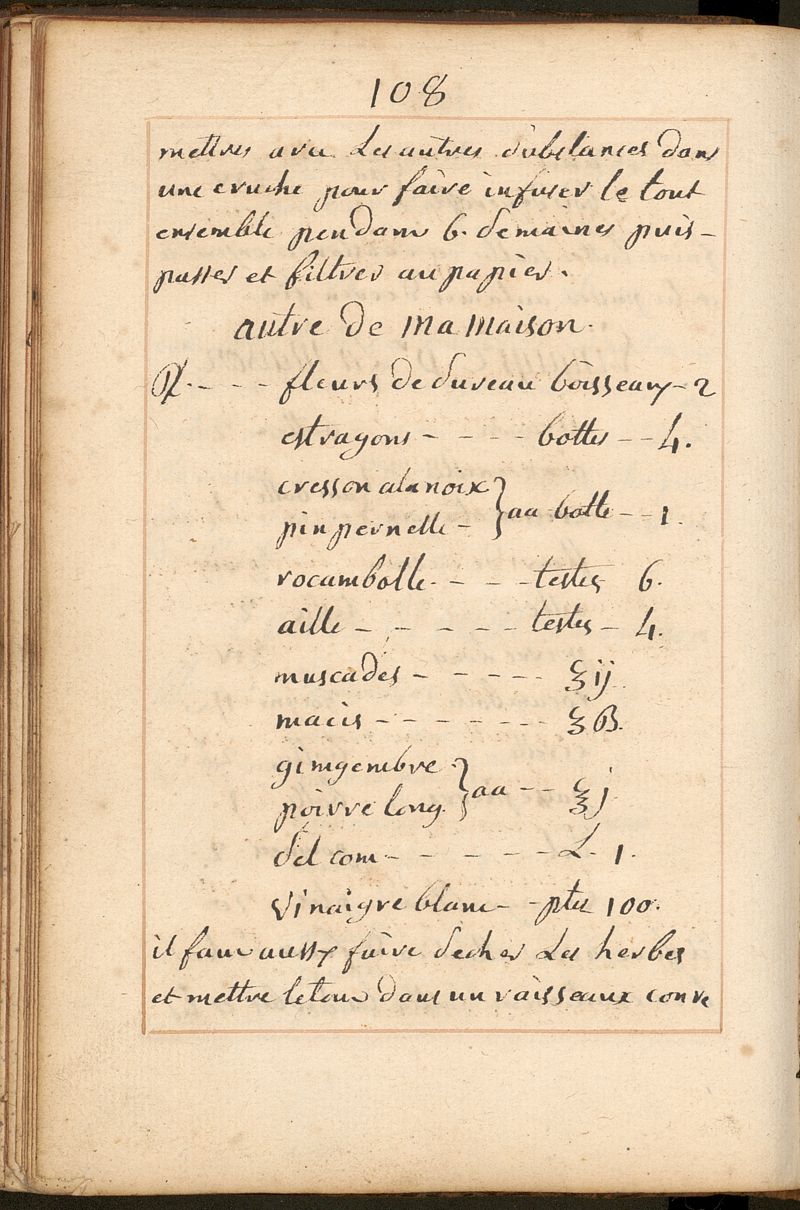 108
mettres avec Les autres substances dans
une cruche pour faire infuser le tout
ensemble pendant 6. semaines puis-
passer et filtrer au papier.
autre de ma maison.
℞.--- fleurs de sureau boisseaux-2
estragons---- bottes--4.
cresson alanoix
pinpernelle- } aa botte--1.
rocambolle.---testes 6.
aille-----testes-4.
muscades----- ℥ ij
macis------- ℥ ß.
gimgembre
poivre long. } aa-- ℥ j
sel com------L. 1.
vinaigre blanc--ptes 100.
il faut aussy faire secher Les herbes
et mettre le tout dans un vaisseaux conve